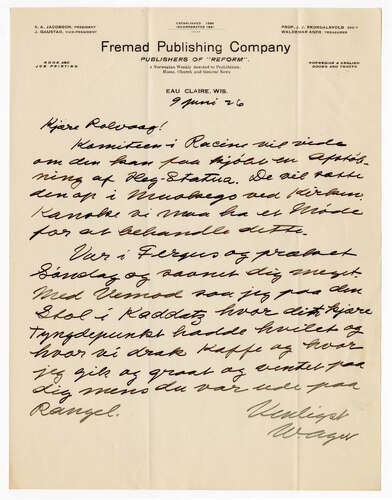 K. A. JACOBSON, PRESIDENT
J. GAUSTAD, VICE-PRESIDENT
ESTABLISHED 1886
INCORPORATED 1891
PROF. J. J. SKORDALSVOLD, SEC'Y
WALDEMAR AGER, TREASURER
Fremad Publishing Company
PUBLISHERS OF "REFORM".
A Norwegian Weekly devoted to Prohibition,
Home, Church and General News
BOOK AND
JOB PRINTING
NORWEGIAN & ENGLISH
BOOKS AND TRACTS
EAU CLAIRE, WIS.
9 juni 26
Kjære Rolvaag!
Komiteen i Racine vil vide
om den kan faa kjøbt en Afstøb-
ning af Heg-Statua. De vil sætte
den op i Muskego ved Kirken.
Kanske vi maa ha et Møde
for at behandle dette.
Var i Fergus og præket
Søndag og savnet dig meget.
Med Vemod saa jeg paa den
Stol i Kaddatz hvor dit kjære
Tyngdepunkt hadde hvilet og
hvor vi drak Kaffe og hvor
jeg gik og graat og ventet paa
dig mens du var ude paa
Rangel.
Venligst
W. Ager